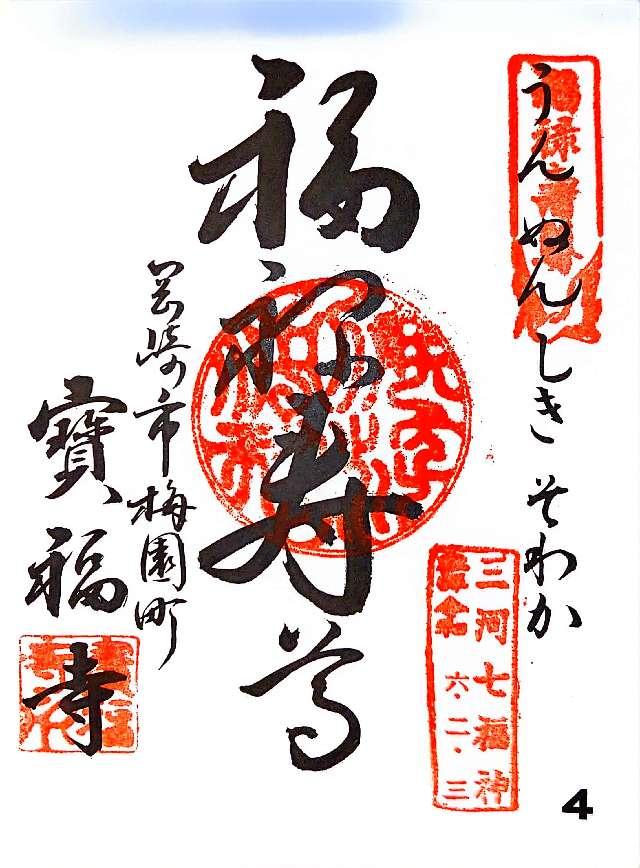 うんぬんしきそわか
福禄寿
福禄寿尊
三河七福神
霊場
六.二.三
岡崎市梅園町
寳福寺
4